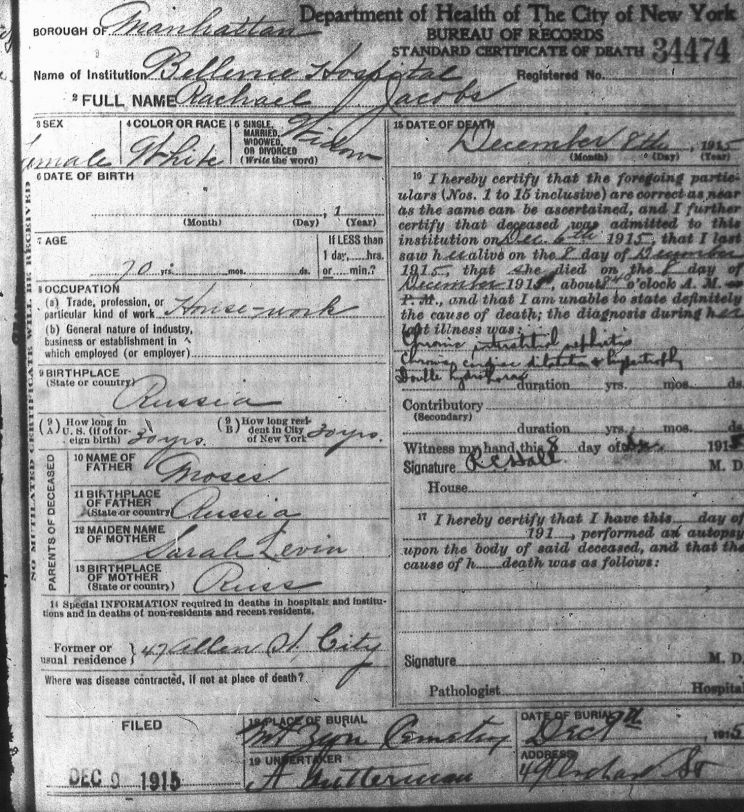 Department of Health of The City of New York
BOROUGH OF Manhattan
BUREAU OF RECORDS
STANDARD CERTIFICATE OF DEATH 34474
Name of Institution Bellevue Hospital Registered No.
2 FULL NAME Rachael Jacobs
3 SEX
Female
4 COLOR OR RACE
White
5 SINGLE, MARRIED, WIDOWED, OR DIVORCED (Write the word)
Widow
6 DATE OF BIRTH
, 1
(Month) (Day) (Year)
7 AGE
70 yrs. mos. ds.
If LESS than
1 day, hrs.
or min.?
8 OCCUPATION
(a) Trade, profession, or
particular kind of work House-work
(b) General nature of industry,
business or establishment in
which employed (or employer)
9 BIRTHPLACE
(State or country)
Russia
(9 A) How long in U. S. (if of foreign birth) 30 yrs.
(9 B) How long resident in City of New York 30 yrs.
PARENTS OF DECEASED
10 NAME OF
FATHER Moses
11 BIRTHPLACE
OF FATHER
(State or country) Russia
12 MAIDEN NAME
OF MOTHER Sarah Levin
13 BIRTHPLACE
OF MOTHER
(State or country) Russ
14 Special INFORMATION required in deaths in hospitals and institu-
tions and in deaths of non-residents and recent residents.
Former or
usual residence } 47 Allen St City
Where was disease contracted, if not at place of death?
NO MUTILATED CERTIFICATE WILL BE RECEIVED
15 DATE OF DEATH
December 8th, 1915
(Month) (Day) (Year)
16 I hereby certify that the foregoing partic-
ulars (Nos. 1 to 15 inclusive) are correct as near
as the same can be ascertained, and I further
certify that deceased was admitted to this
institution on Dec 6th 1915, that I last
saw her alive on the 8 day of December
1915, that she died on the 8 day of
December 1915, about o'clock A. M. or
P. M., and that I am unable to state definitely
the cause of death; the diagnosis during her
last illness was:
Chronic interstitial nephritis
Chronic cardiac dilatation & hypertrophy
Double hydrothorax
duration yrs. mos. ds.
Contributory
(Secondary)
duration yrs. mos. ds.
Witness my hand this 8 day of Dec 1915
Signature R C Hall M. D.
House
17 I hereby certify that I have this day of
191 , performed an autopsy
upon the body of said deceased, and that the
cause of h death was as follows:
Signature M. D.
Pathologist Hospital
FILED
DEC 9 1915
18 PLACE OF BURIAL
Mt Zion Cemetery
DATE OF BURIAL
Dec 9th 1915
19 UNDERTAKER
A Nutterman
ADDRESS
49 Orchard St